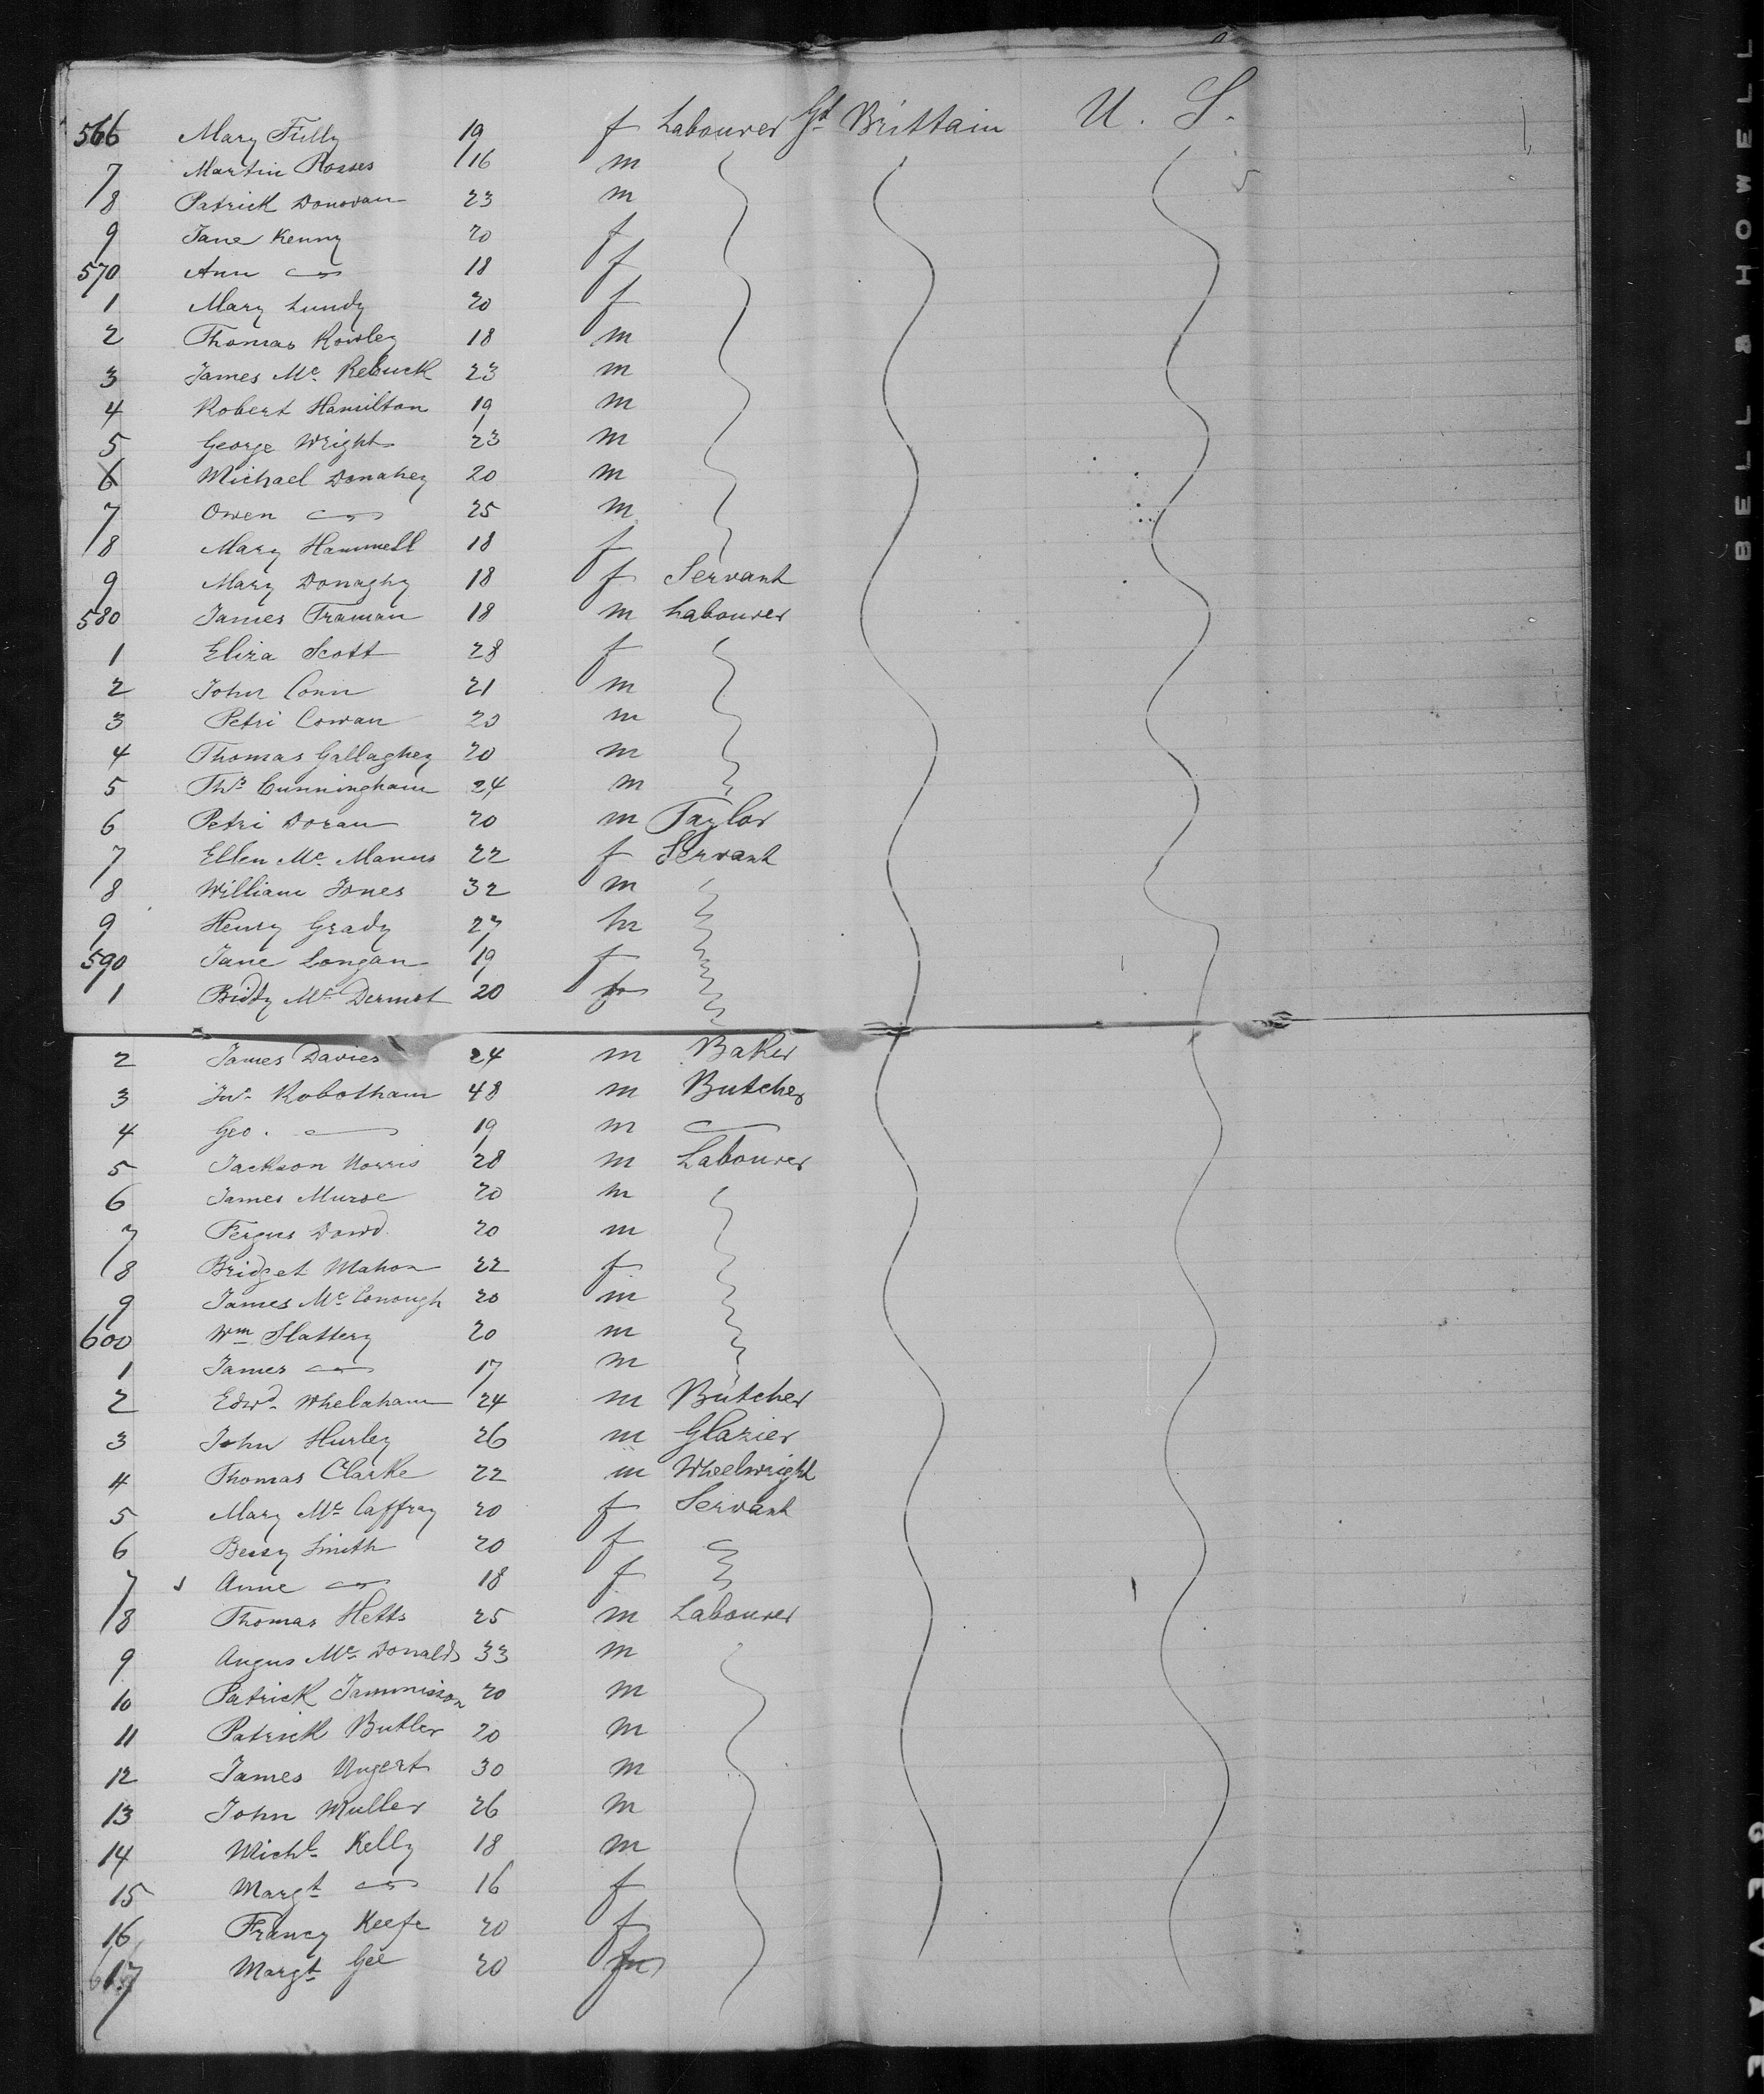 566 Mary Tully 19 f Labourer Gt Brittain U. S.
7 Martin Rosses 16 m
8 Patrick Donovan 23 m
9 Jane Kenny 20 f
570 Ann 18 f
1 Mary Lundy 20 f
2 Thomas Rowley 18 m
3 James Mc Rebuck 23 m
4 Robert Hamilton 19 m
5 George Wright 23 m
6 Michael Donahey 20 m
7 Owen 25 m
8 Mary Hammell 18 f
9 Mary Donaghy 18 f Servant
580 James Traman 18 m Labourer
1 Eliza Scott 28 f
2 John Conn 21 m
3 Petri Cowan 20 m
4 Thomas Gallaghey 20 m
5 Ths Cunningham 24 m
6 Petri Doran 20 m Taylor
7 Ellen Mc Manus 22 f Servant
8 William Jones 32 m
9 Henry Grady 27 m
590 Jane Longan 19 f
1 Biddy Mc Dermot 20 f
2 James Davies 24 m Baker
3 Jno Robotham 48 m Butcher
4 Geo. 19 m
5 Jackson Norris 28 m Labourer
6 James Murse 20 m
7 Fergus Dowd 20 m
8 Bridget Mahon 22 f
9 James Mc Conough 20 m
600 Wm Slattery 20 m
1 James 17 m
2 Edwd Whelaham 24 m Butcher
3 John Hurley 26 m Glazier
4 Thomas Clarke 22 m Wheelwright
5 Mary Mc Caffray 20 f Servant
6 Bessy Smith 20 f
7 Anne 18 f
8 Thomas Hetts 25 m Labourer
9 Angus Mc Donald 33 m
10 Patrick Jammisson 20 m
11 Patrick Butler 20 m
12 James Nugent 30 m
13 John Muller 26 m
14 Michl Kelly 18 m
15 Margt 16 f
16 Francy Keefe 20 f
617 Margt Gee 20 f
BELL & HOWELL